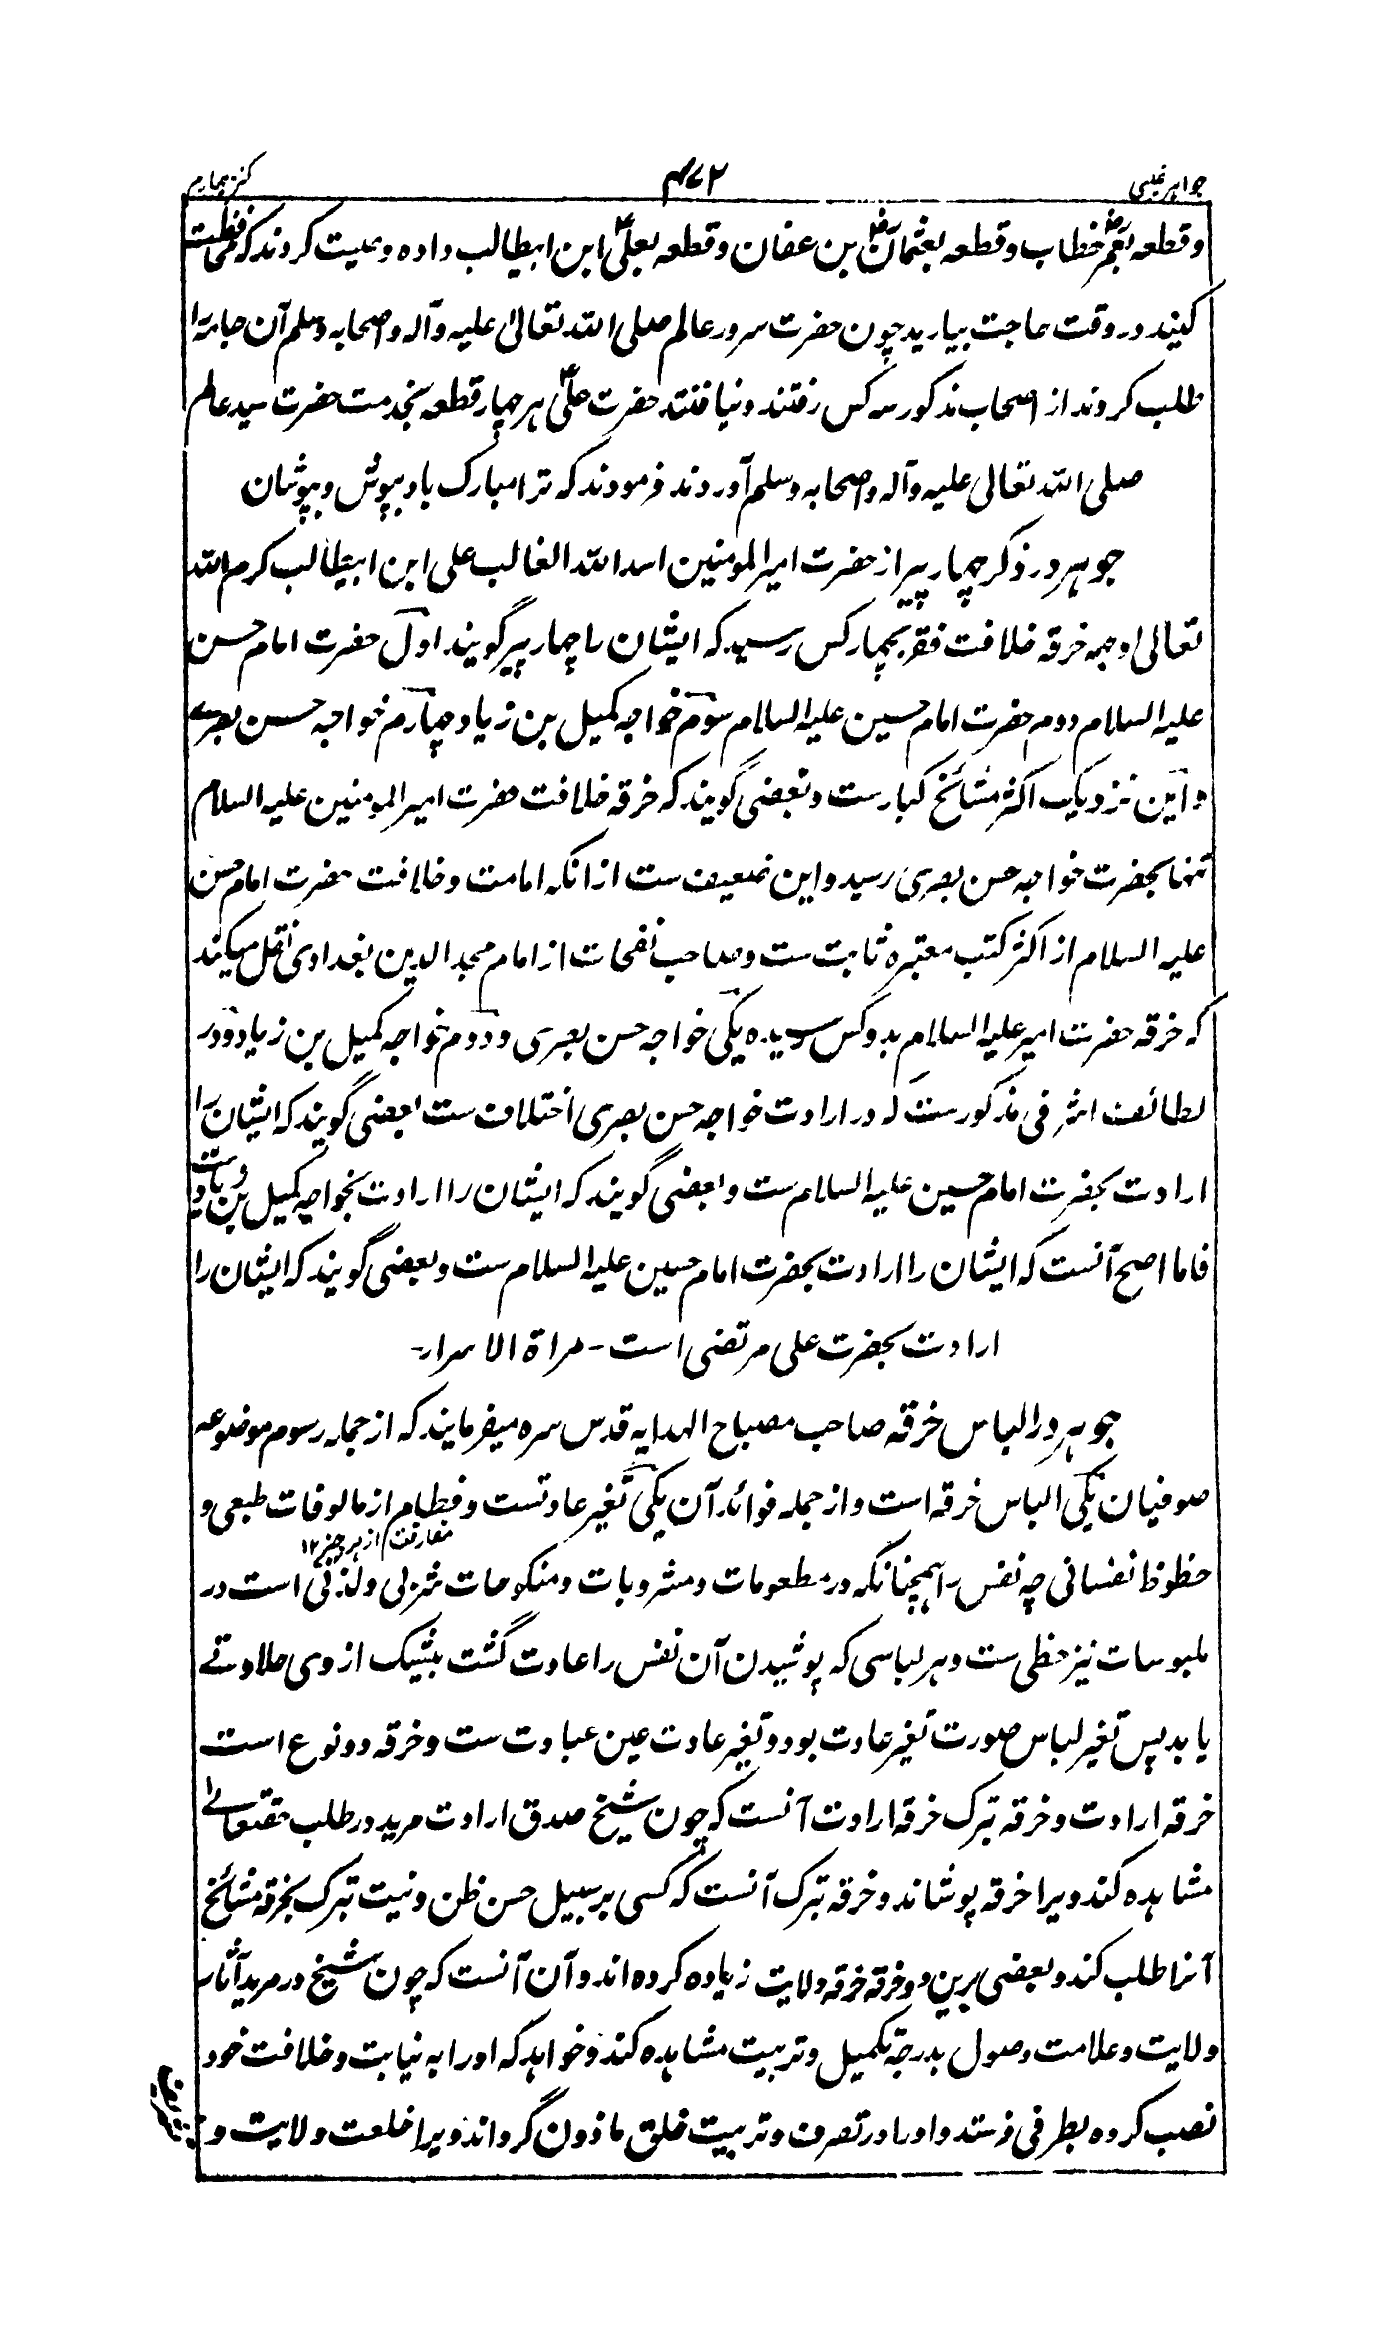 جواہر غیبی ۴۷۲ کنز چہارم
و قطعہ بعمرؓ خطاب و قطعہ بعثمانؓ بن عفان و قطعہ بعلیؑ ابن ابیطالب دادہ وصیت کردند کہ محافظت
کنید در وقت حاجت بیارید چون حضرت سرور عالم صلی اللہ تعالیٰ علیہ وآلہ واصحابہ وسلم آن جامہ را
طلب کردند از اصحاب مذکور سہ کس رفتند و نیافتند حضرت علیؑ ہر چہار قطعہ بخدمت حضرت سید عالم
صلی اللہ تعالی علیہ وآلہ واصحابہ وسلم آوردند فرمودند کہ ترا مبارک باد بپوش و بپوشان
جوہر در ذکر چہار پیر از حضرت امیرالمومنین اسد اللہ الغالب علی ابن ابیطالب کرم اللہ
تعالی وجہہ خرقہ خلافت فقر بچہار کس رسید کہ ایشان را چہار پیر گویند اول حضرت امام حسن
علیہ السلام دوم حضرت امام حسین علیہ السلام سوم خواجہ کمیل بن زیاد چہارم خواجہ حسن بصرے
و این نزدیک اکثر مشائخ کبارست و بعضی گویند کہ خرقہ خلافت حضرت امیرالمومنین علیہ السلام
تنہا بحضرت خواجہ حسن بصری رسید و این ضعیف ست از انکہ امامت و خلافت حضرت امام حسن
علیہ السلام از اکثر کتب معتبرہ ثابت ست و صاحب نفحات از امام مجد الدین بغدادی نقل میکند
کہ خرقہ حضرت امیر علیہ السلام بدو کس رسیدہ یکی خواجہ حسن بصری و دوم خواجہ کمیل بن زیاد و در
لطائف اشرفی مذکورست کہ در ارادت خواجہ حسن بصری اختلاف ست بعضی گویند کہ ایشان را
ارادت بحضرت امام حسین علیہ السلام ست و بعضی گویند کہ ایشان را ارادت بخواجہ کمیل بن زیاد ست
فاما اصح آنست کہ ایشان را ارادت بحضرت امام حسین علیہ السلام ست و بعضی گویند کہ ایشان را
ارادت بحضرت علی مرتضی است - مراۃ الاسرار -
جوہر در الباس خرقہ صاحب مصباح الہدایہ قدس سرہ میفرمایند کہ از جملہ رسوم موضوعہ
صوفیان یکی الباس خرقہ است و از جملہ فوائد آن یکی تغیر عادتست و فطام از مالوفات طبعی و
مفارقت از ہر چیز ۱۲
حظوظ نفسانی چہ نفس را ہمچنانکہ در مطعومات و مشروبات و منکوحات شرلی و لذتی است در
ملبوسات نیز حظی ست و ہر لباسی کہ پوشیدن آن نفس را عادت گشت بیشک از وی حلاوتے
یابد پس تغیر لباس صورت تغیر عادت بود و تغیر عادت عین عبادت ست و خرقہ دو نوع است
خرقہ ارادت و خرقہ تبرک خرقہ ارادت آنست کہ چون شیخ صدق ارادت مرید در طلب حقتعالےٰ
مشاہدہ کند ویرا خرقہ پوشاند و خرقہ تبرک آنست کہ کسی بر سبیل حسن ظن و نیت تبرک بخرقہ مشائخ
آنرا طلب کند و بعضی برین دو خرقہ خرقہ ولایت زیادہ کردہ اند و آن آنست کہ چون شیخ در مرید آثار
ولایت و علامت وصول بدرجۂ تکمیل و تربیت مشاہدہ کند و خواہد کہ او را بہ نیابت و خلافت خود
نصب کردہ بطرفی فرستد و او را در تصرف و تربیت خلق ماذون گرداند ویرا خلعت ولایت و